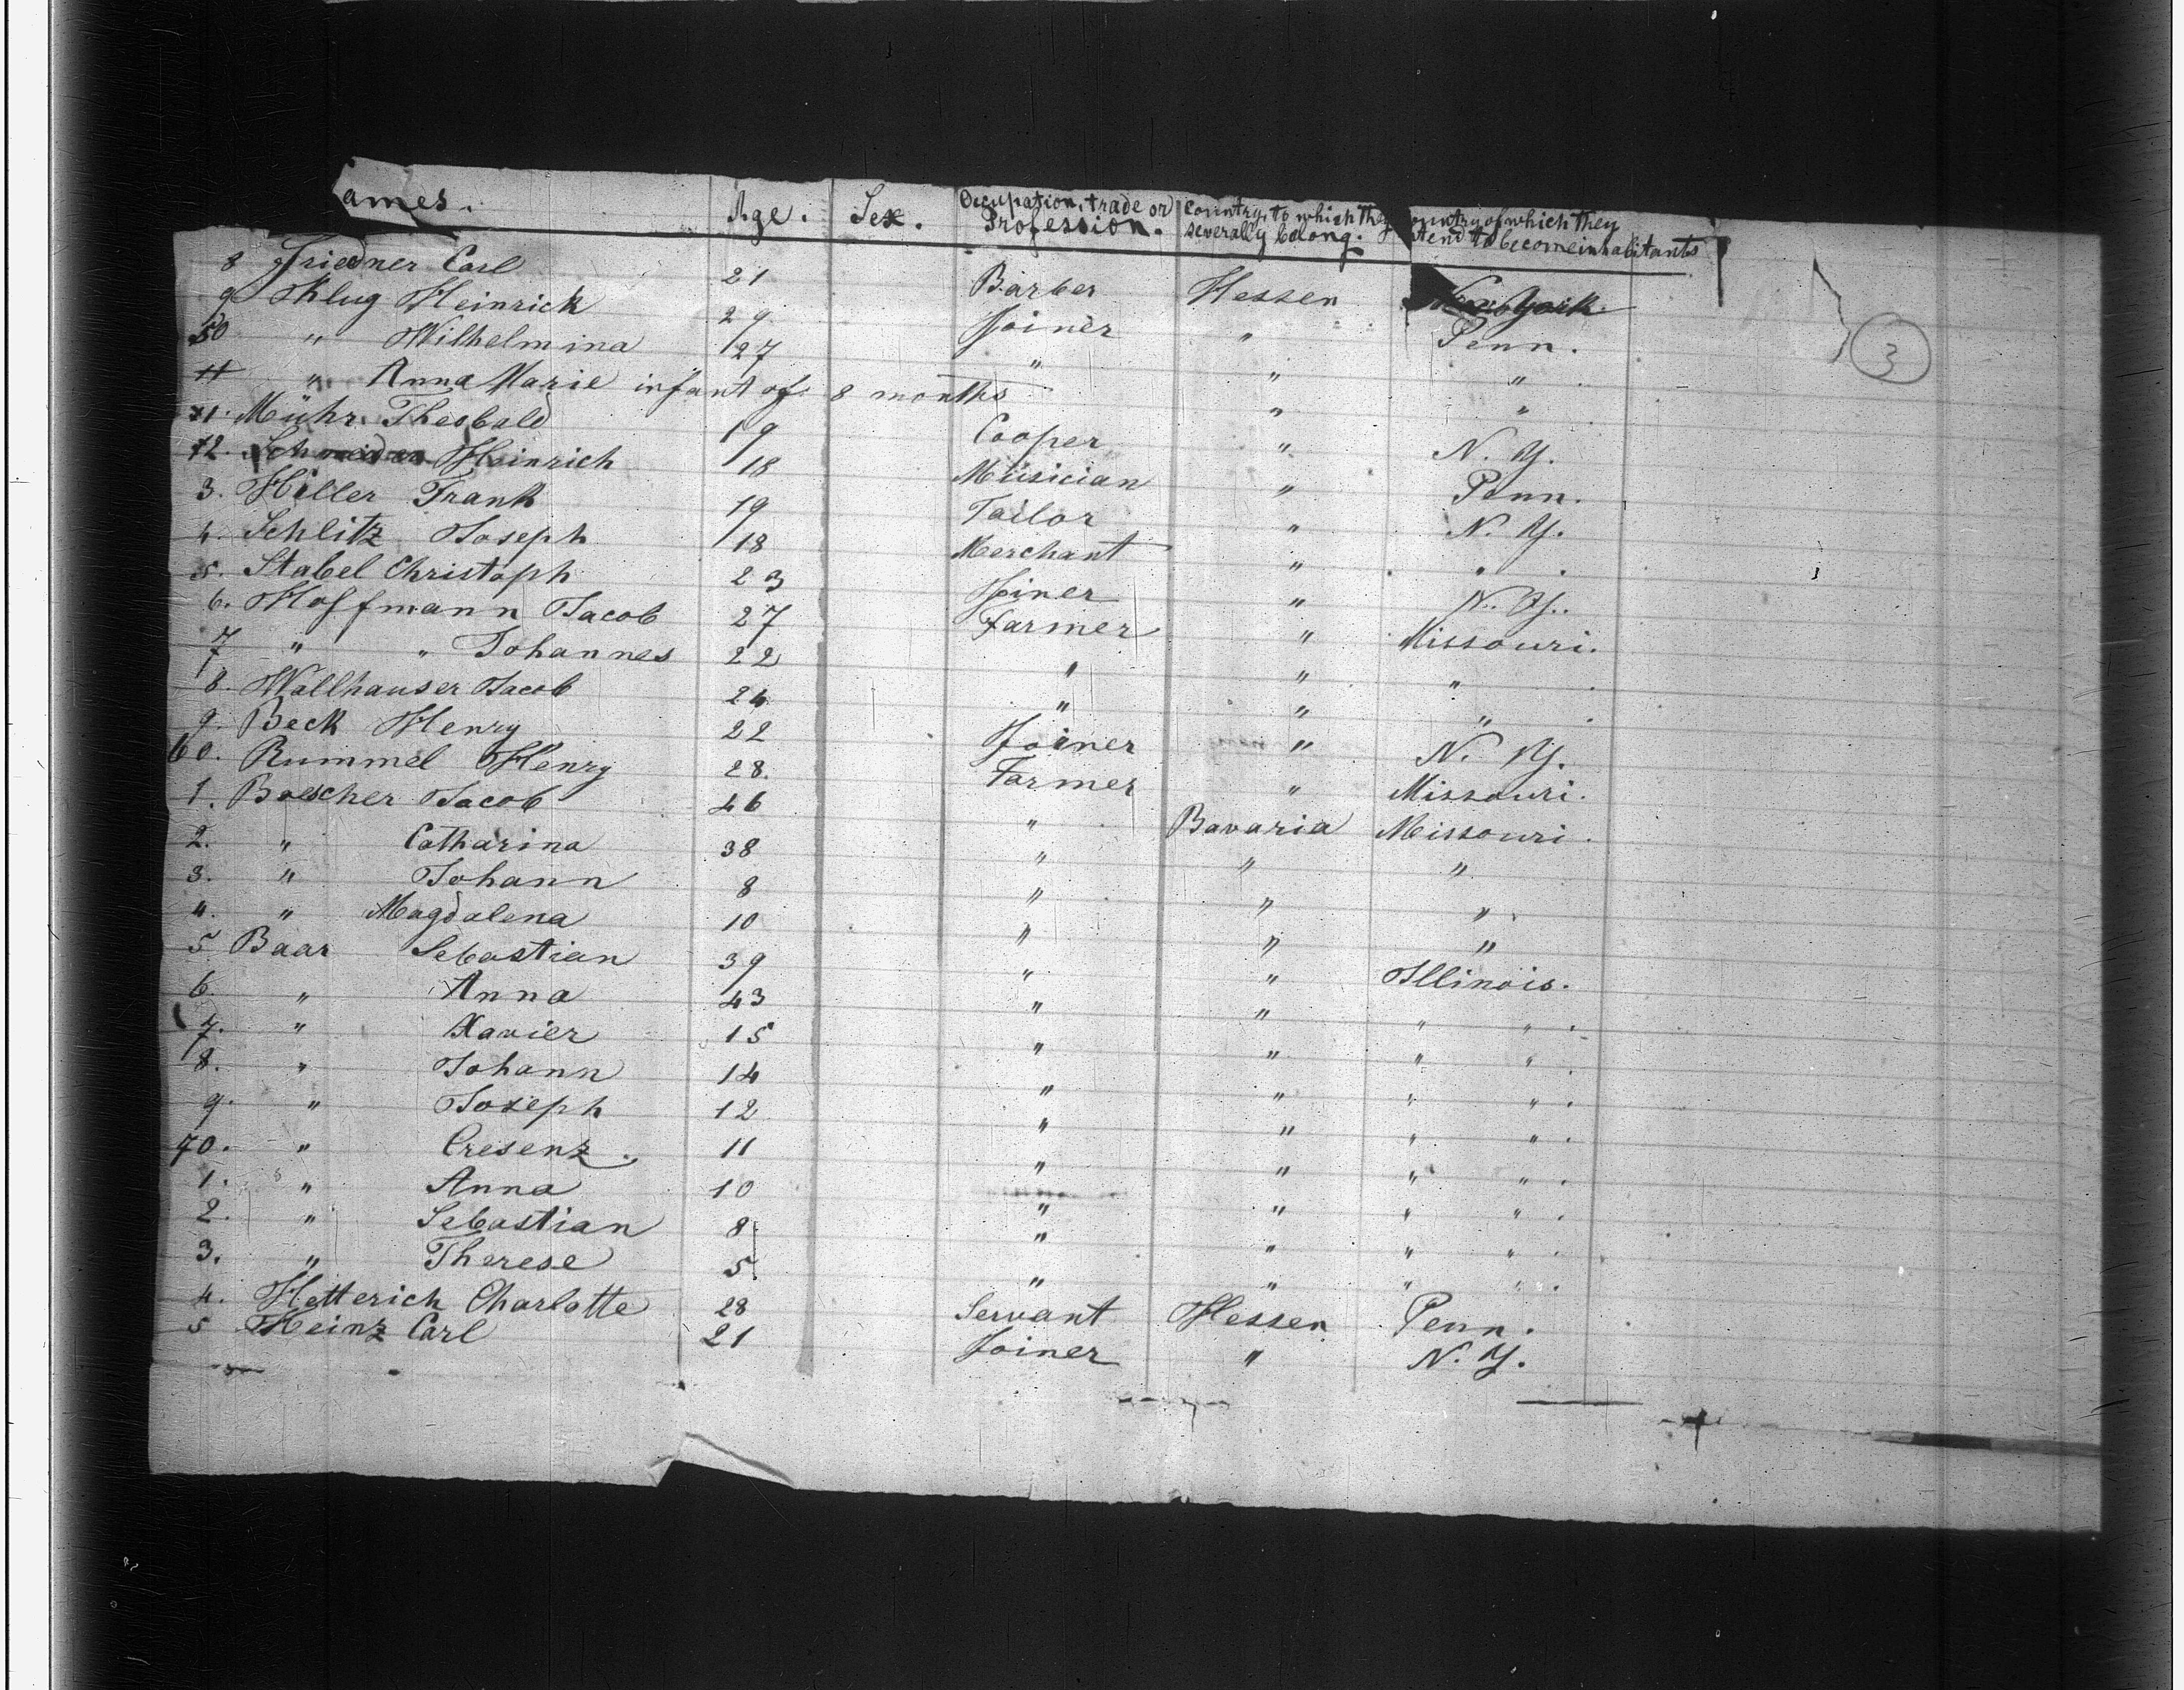 ames. Age. Sex. Occupation, trade or Profession. Country, to which they severally belong. ountry of which they tend to become inhabitants
8 Friedner Carl 21 Barber Hessen New York.
9 Klug Heinrick 29 Joiner " Penn.
50 " Wilhelmina 27 " " "
" Anna Marie infant of 8 months " "
1. Mühr Theobald 19 Cooper " N. Y.
2. Heinrich 18 Musician " Penn.
3. Hiller Frank 19 Tailor " N. Y.
4. Schlitz Joseph 18 Merchant " "
5. Stabel Christoph 23 Joiner " N. Y.
6. Hoffmann Jacob 27 Farmer " Missouri.
7 " " Johannes 22 " " "
8. Wallhauser Jacob 24 " " "
9. Beck Henry 22 Joiner " N. Y.
60. Rummel Henry 28. Farmer " Missouri.
1. Boescher Jacob 46 " Bavaria Missouri.
2. " Catharina 38 " " "
3. " Johann 8 " " "
4. " Magdalena 10 " " "
5 Baar Sebastian 39 " " Illinois.
6. " Anna 43 " " " " .
7. " Xavier 15 " " " " .
8. " Johann 14 " " " " .
9. " Joseph 12 " " " " .
70. " Cresenz. 11 " " " " .
1. " Anna 10 " " " " .
2. " Sebastian 8 " " " " .
3. " Therese 5 " " " " .
4. Hetterich Charlotte 28 Servant Hessen Penn.
5 Heinz Carl 21 Joiner " N. Y.
3